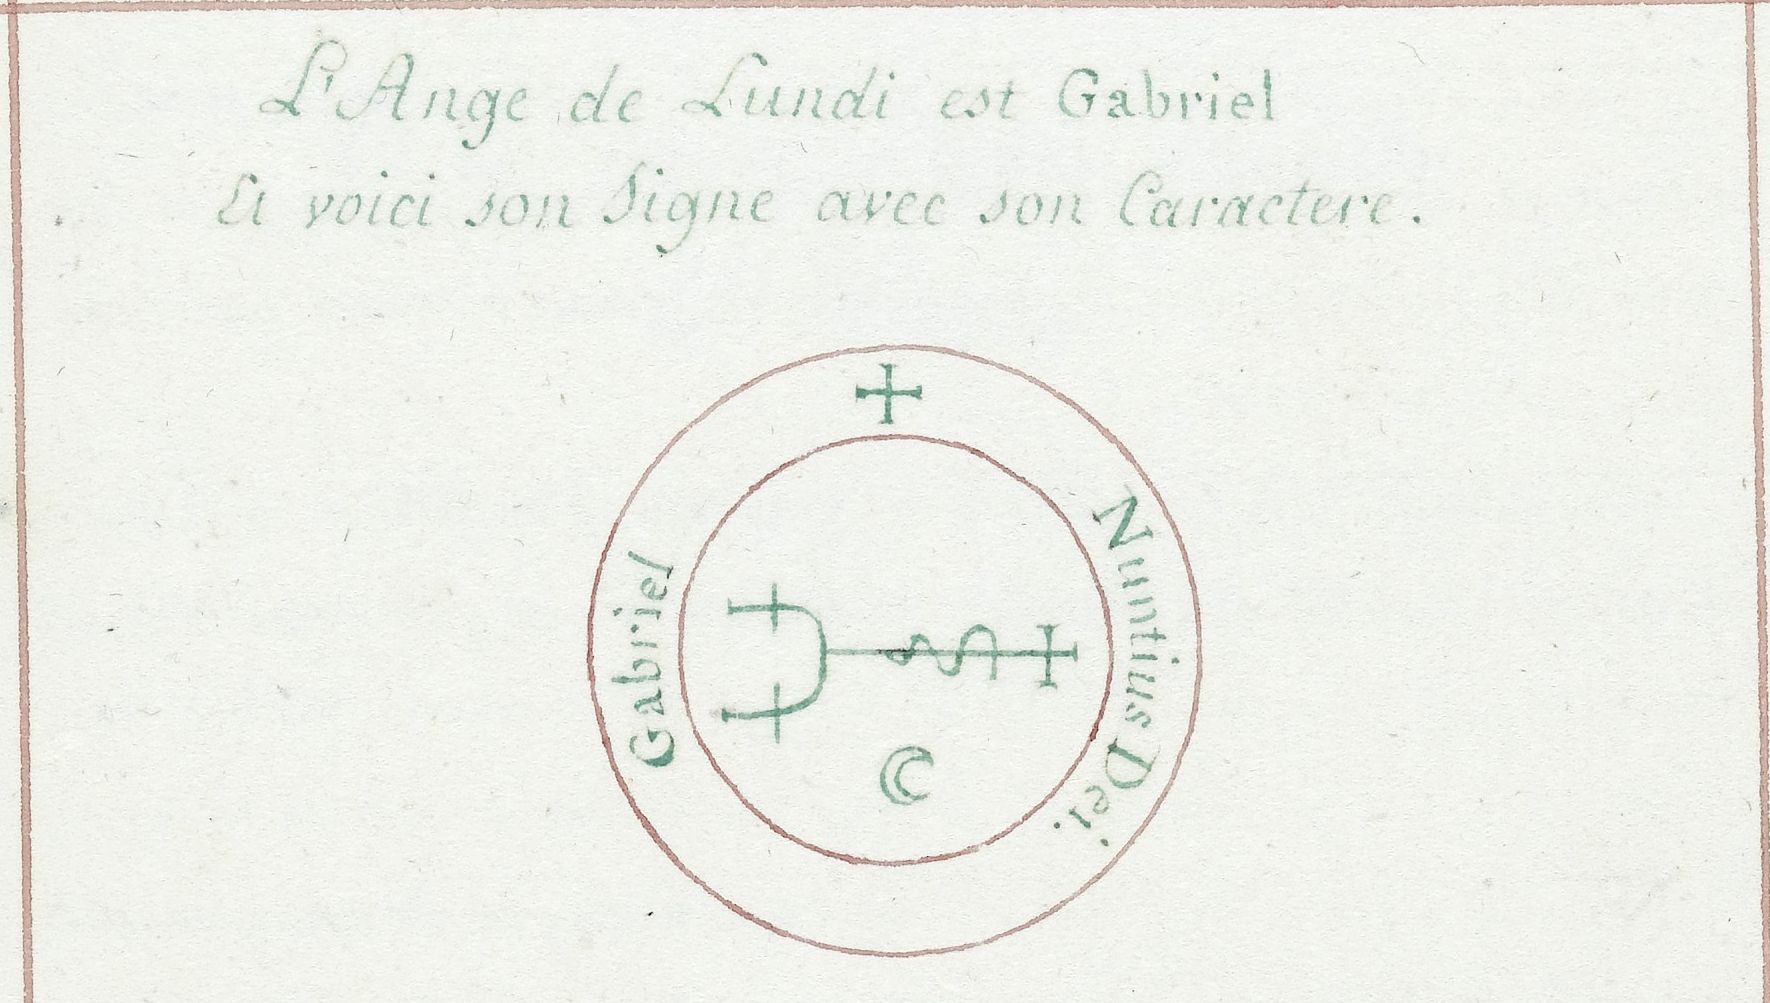 L'Ange de Lundi est Gabriel
Et voici son Signe avec son Caractere.
Gabriel
Nuntius Dei.